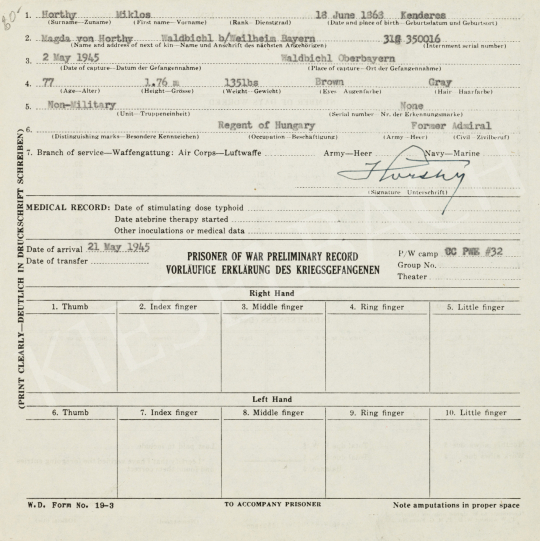 1. Horthy Miklos 18 June 1868 Kenderes
(Surname—Zuname) (First name—Vorname) (Rank—Dienstgrad) (Date and place of birth—Geburtsdatum und Geburtsort)
2. Magda von Horthy Waldbichl b/Weilheim Bayern 31G 350016
(Name and address of next of kin—Name und Anschrift des nächsten Angehörigen) (Internment serial number)
3. 2 May 1945 Waldbichl Oberbayern
(Date of capture—Datum der Gefangennahme) (Place of capture—Ort der Gefangennahme)
4. 77 1.76 m 135lbs Brown Gray
(Age—Alter) (Height—Grösse) (Weight—Gewicht) (Eyes Augenfarbe) (Hair Haarfarbe)
5. Non-Military None
(Unit—Truppeneinheit) (Serial number Nr. der Erkennungsmarke)
6. Regent of Hungary Former Admiral
(Distinguishing marks—Besondere Kennzeichen) (Occupation—Beschäftigung) (Army—Heer) (Civil—Zivilberuf)
7. Branch of service—Waffengattung: Air Corps—Luftwaffe Army—Heer Navy—Marine
Horthy
(Signature Unterschrift)
MEDICAL RECORD: Date of stimulating dose typhoid
Date atebrine therapy started
Other inoculations or medical data
Date of arrival 21 May 1945
Date of transfer
PRISONER OF WAR PRELIMINARY RECORD
VORLÄUFIGE ERKLÄRUNG DES KRIEGSGEFANGENEN
P/W camp CC PWE #32
Group No.
Theater
(PRINT CLEARLY—DEUTLICH IN DRUCKSCHRIFT SCHREIBEN)
Right Hand
1. Thumb 2. Index finger 3. Middle finger 4. Ring finger 5. Little finger
Left Hand
6. Thumb 7. Index finger 8. Middle finger 9. Ring finger 10. Little finger
W.D. Form No. 19-3 TO ACCOMPANY PRISONER Note amputations in proper space